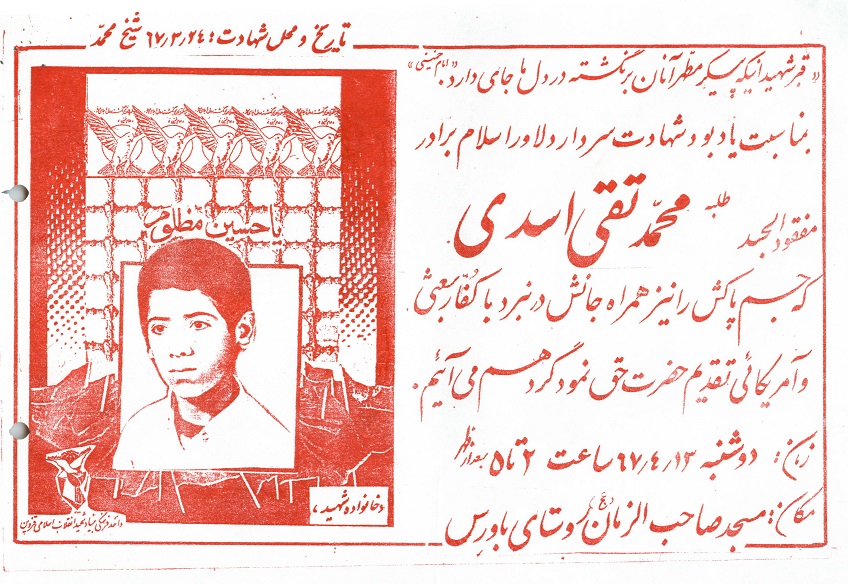 تاریخ و محل شهادت: ۶۷٫۳٫۲۴ شیخ محمّد
«قبر شهیدانیکه پیکر مطهّر آنان برنگشته در دل ما جای دارد.» «امام خمینی»
بمناسبت یادبود شهادت سردار دلاور اسلام برادر
مفقود الجسد طلبه محمّد تقی اسدی
که جسم پاکش را نیز همراه جانش در نبرد با کفّار بعثی
و آمریکائی تقدیم حضرت حق نمود گرد هم می‌آئیم.
زمان: دوشنبه ۶۷٫۴٫۱۳ ساعت ۲ تا ۵ بعد از ظهر
مکان: مسجد صاحب الزمان (عج) روستای باورس
یا حسین مظلوم
«خانواده شهید»
واحد فرهنگی بنیاد شهید انقلاب اسلامی قزوین